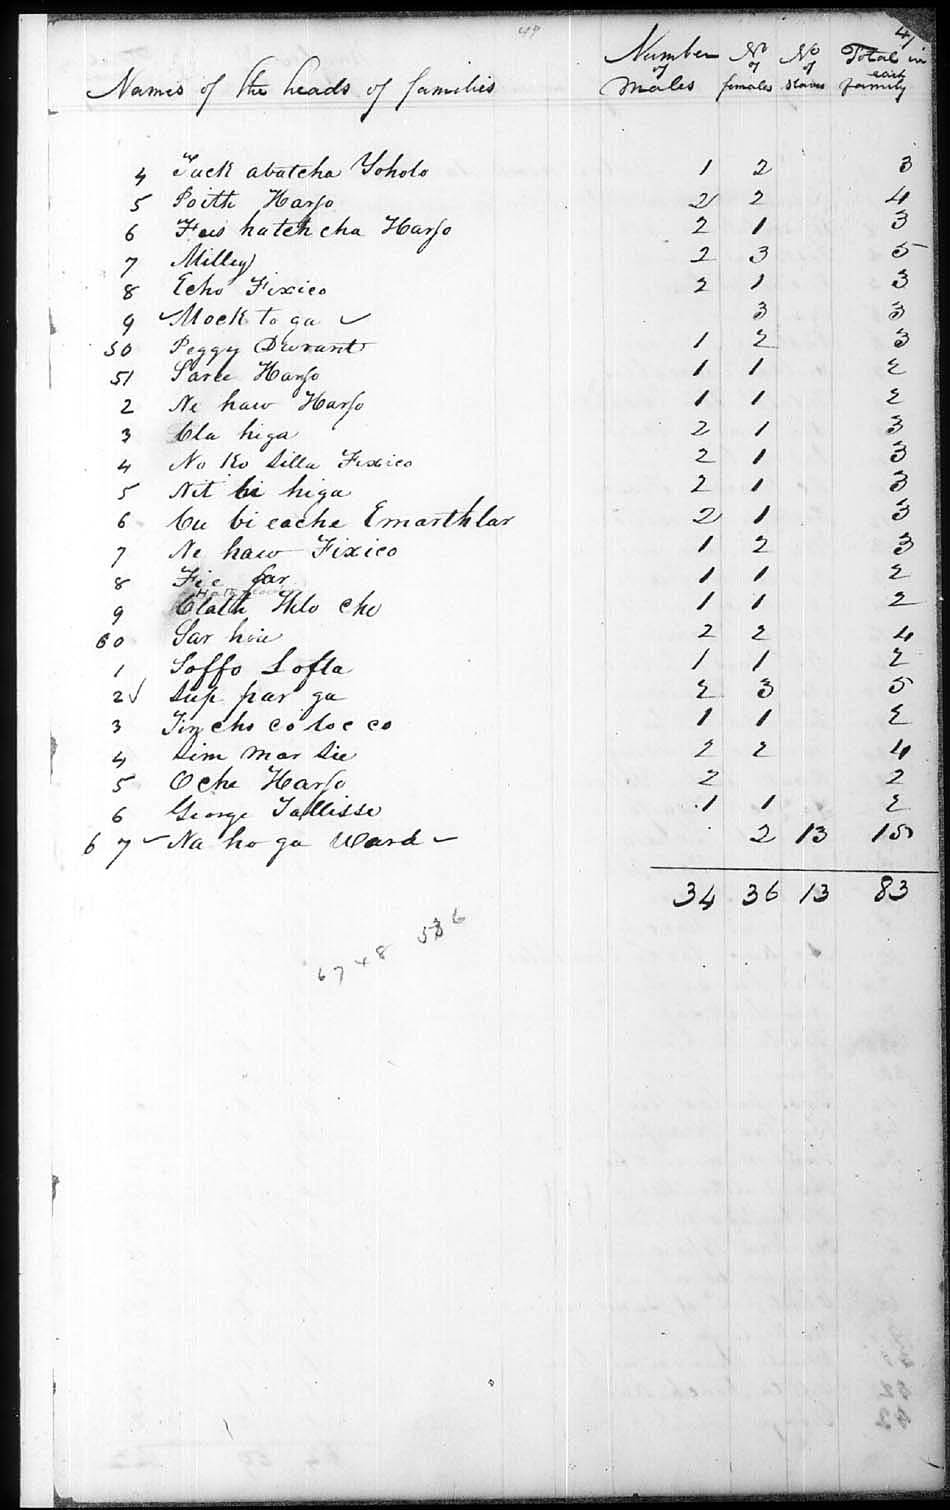 47
Number No No Total in
of of of each
Names of the heads of families males females slaves family
4 Tuck abatcha Yoholo 1 2 3
5 Poith Harjo 2 2 4
6 Fus hatchcha Harjo 2 1 3
7 Milley 2 3 5
8 Echo Fixico 2 1 3
9 Mock to ga 3 3
50 Peggy Durant 1 2 3
51 Sarce Harjo 1 1 2
2 Ne haw Harjo 1 1 2
3 Cla higa 2 1 3
4 No Ko silla Fixico 2 1 3
5 Nit bi higa 2 1 3
6 Cu bi cache Emarthlar 2 1 3
7 Ne haw Fixico 1 2 3
8 Fic far 1 1 2
9 Clath Hlo cho 1 1 2
60 Sar hoie 2 2 4
1 Soffo Lofta 1 1 2
2 Sup par ga 2 3 5
3 Tim cho co loc co 1 1 2
4 Sim mar sie 2 2 4
5 Oche Harjo 2 2
6 George Tallisse 1 1 2
67 Na ho ga Ward 2 13 15
34 36 13 83
67 x 8 536